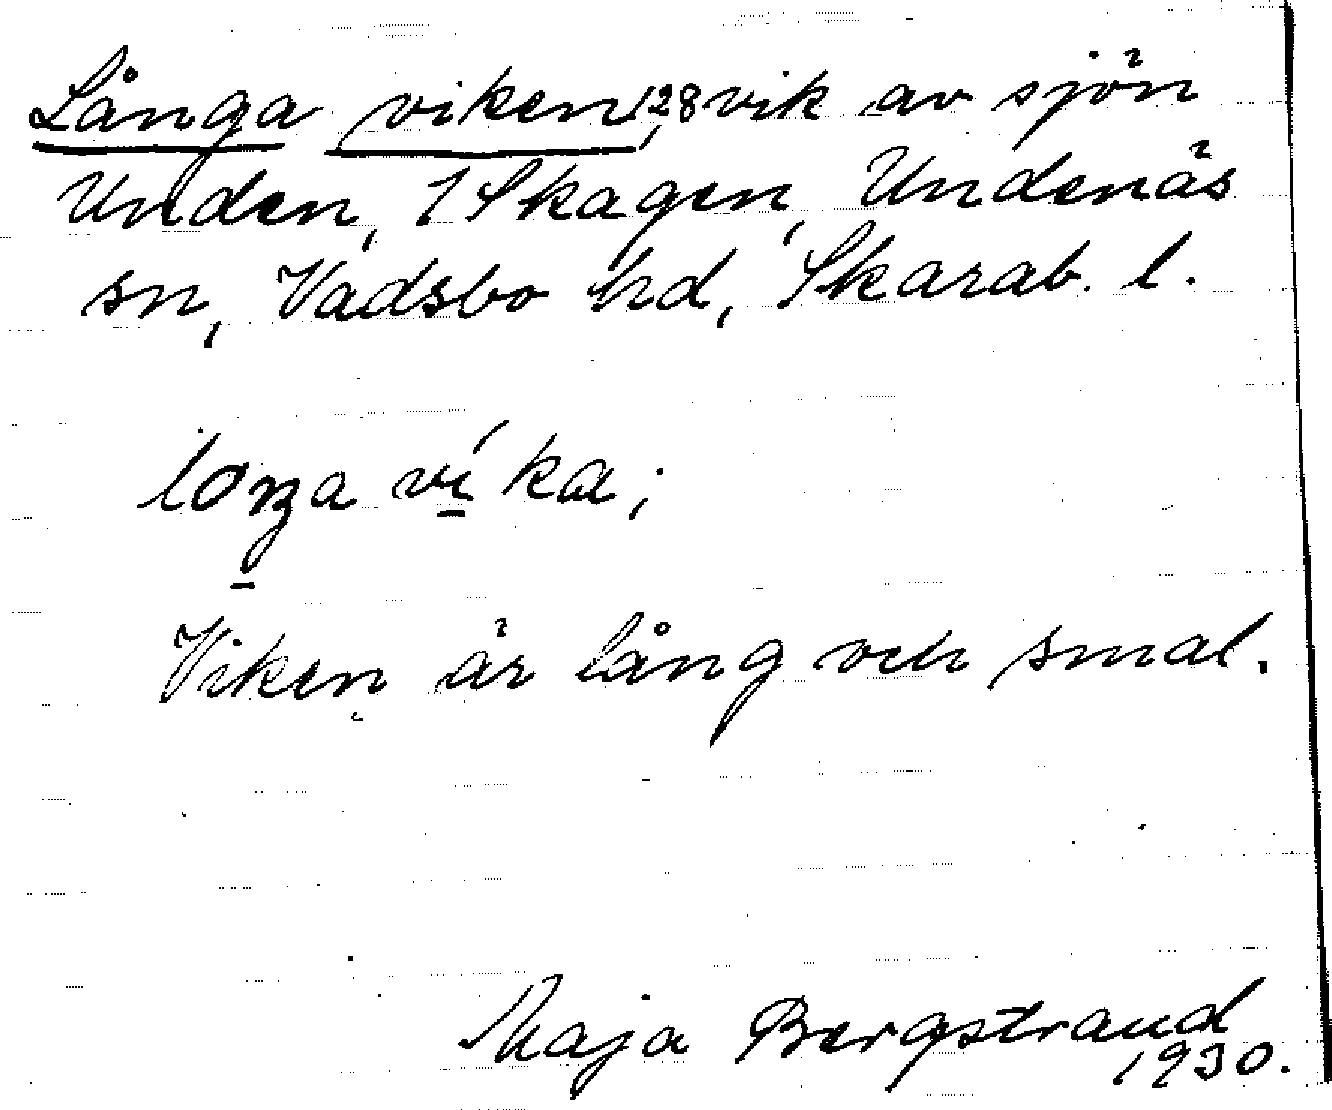 Långa viken, 128 vik av sjön
Unden, 1 Skagen, Undenäs
sn, Vadsbo hd, Skarab. l.
loŋa víka;
Viken är lång och smal.
Maja Bergstrand
1930.